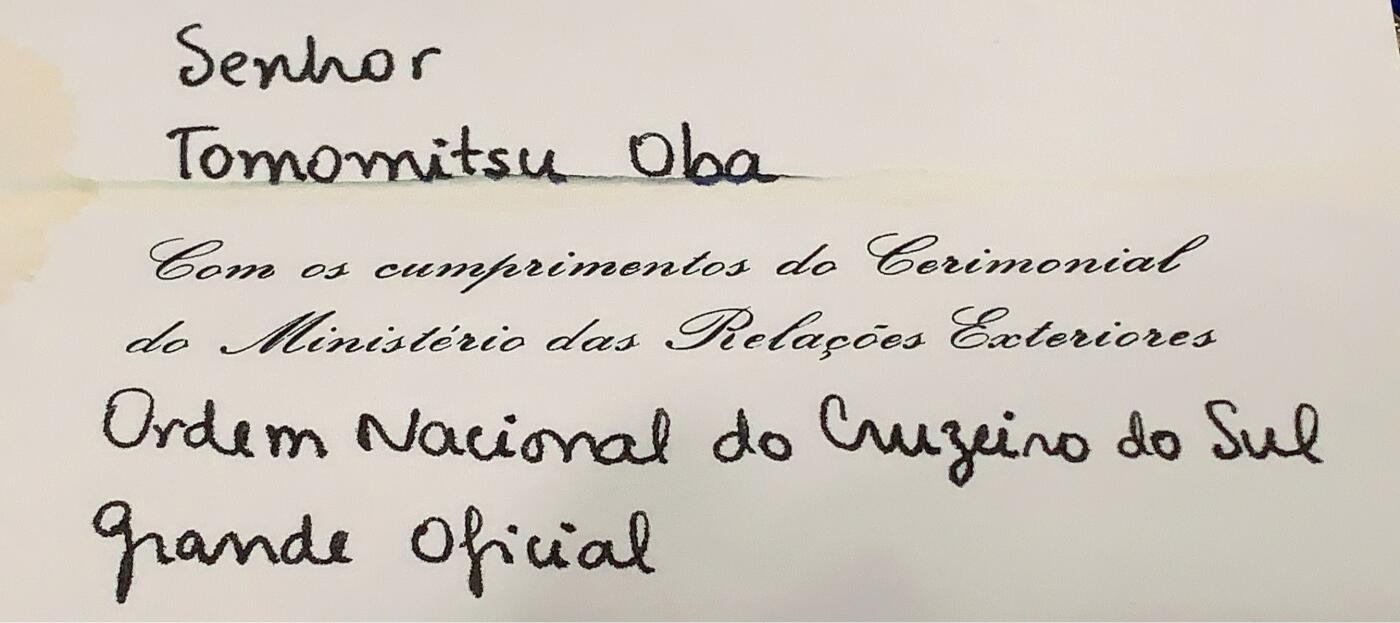 Senhor
Tomomitsu Oba
Com os cumprimentos do Cerimonial
do Ministério das Relações Exteriores
Ordem Nacional do Cruzeiro do Sul
Grande Oficial